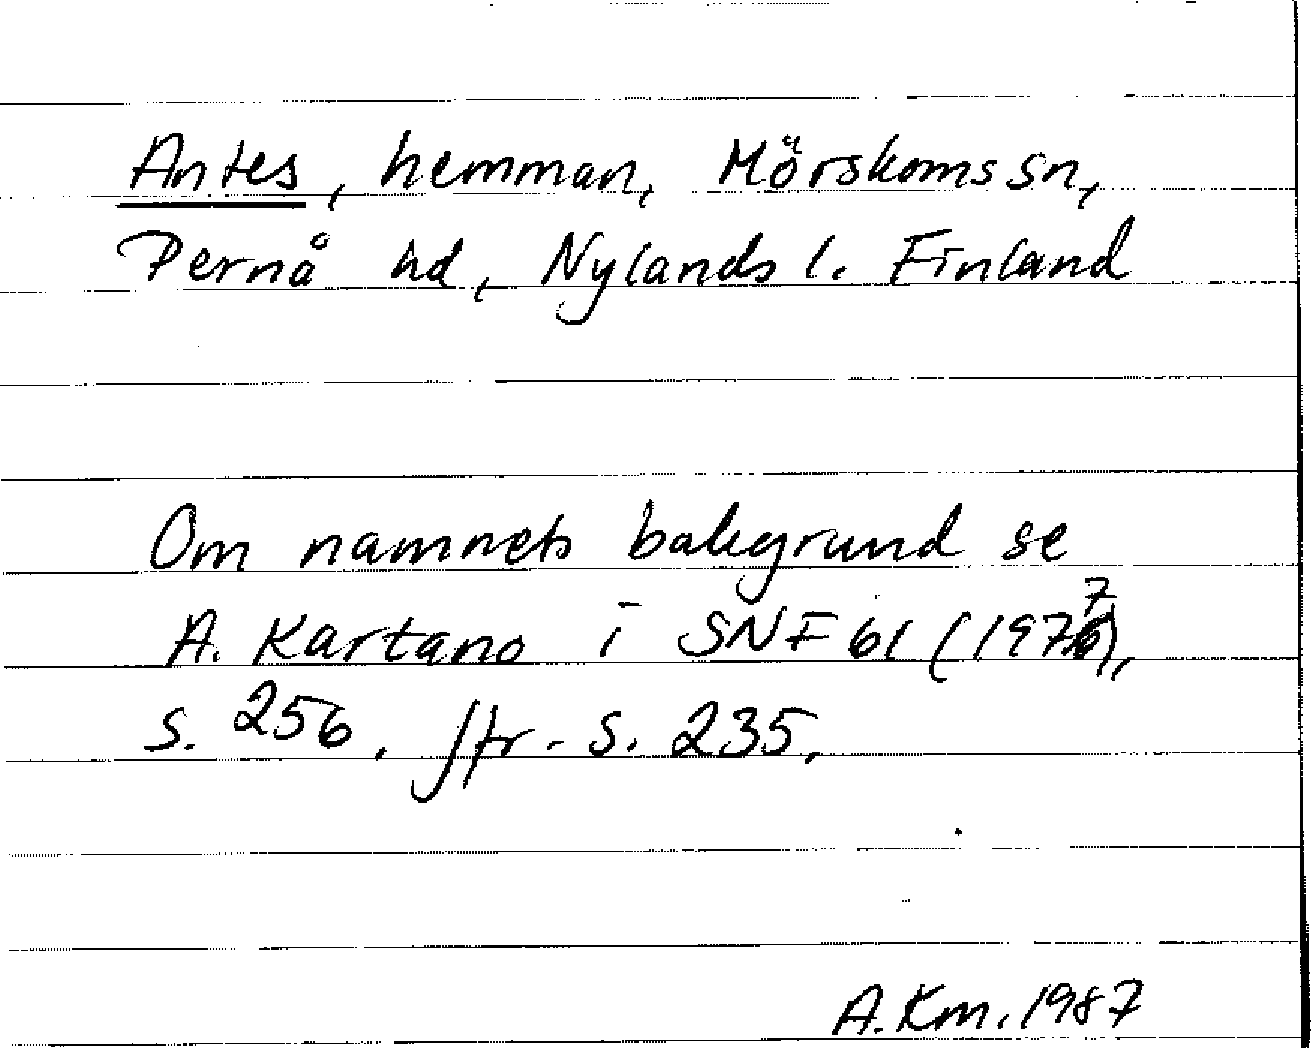 Antes, hemman, Mörskoms sn,
Pernå hd, Nylands l. Finland
Om namnets bakgrund se
A. Kartano i SNF 61 (1977),
s. 256. Jfr. s. 235.
A.Km. 1987